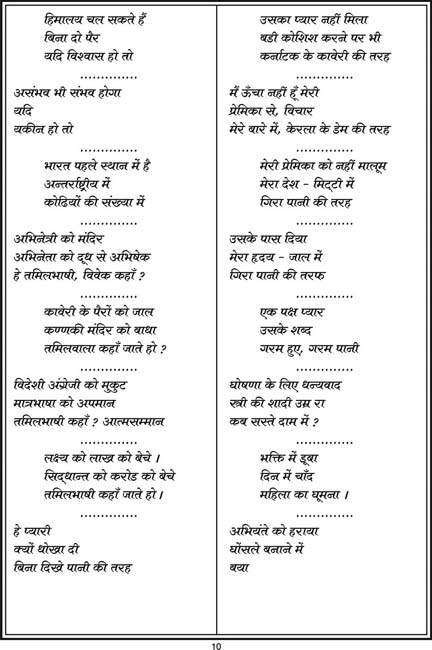 हिमालय चल सकते हैं
बिना दो पैर
यदि विश्वास हो तो
..............
असंभव भी संभव होगा
यदि
यकीन हो तो
..............
भारत पहले स्थान में है
अन्तर्राष्ट्रीय में
कोढियों की संख्या में
..............
अभिनेत्री को मंदिर
अभिनेता को दूध से अभिषेक
हे तमिलभाषी, विवेक कहाँ ?
..............
कावेरी के पैरों को जाल
कण्णकी मंदिर को बाधा
तमिलवाला कहाँ जाते हो ?
..............
विदेशी अंग्रेजी को मुकुट
मात्रभाषा को अपमान
तमिलभाषी कहाँ ? आत्मसम्मान
..............
लक्ष्य को लाख को बेचे ।
सिद्धान्त को करोड को बेचे
तमिलभाषी कहाँ जाते हो ।
..............
हे प्यारी
क्यों धोखा दी
बिना दिखे पानी की तरह
उसका प्यार नहीं मिला
बडी कोशिश करने पर भी
कर्नाटक के कावेरी की तरह
..............
मैं ऊँचा नहीं हूँ मेरी
प्रेमिका से, विचार
मेरे बारे में, केरला के डेम की तरह
..............
मेरी प्रेमिका को नहीं मालूम
मेरा देश - मिट्टी में
गिरा पानी की तरह
..............
उसके पास दिया
मेरा हृदय - जाल में
गिरा पानी की तरफ
..............
एक पक्ष प्यार
उसके शब्द
गरम हुए, गरम पानी
..............
घोषणा के लिए धन्यवाद
स्त्री की शादी उम्र रा
कब सस्ते दाम में ?
..............
भक्ति में डूबा
दिन में चाँद
महिला का घूमना ।
..............
अभियंते को हराया
घोंसले बनाने में
बया
10